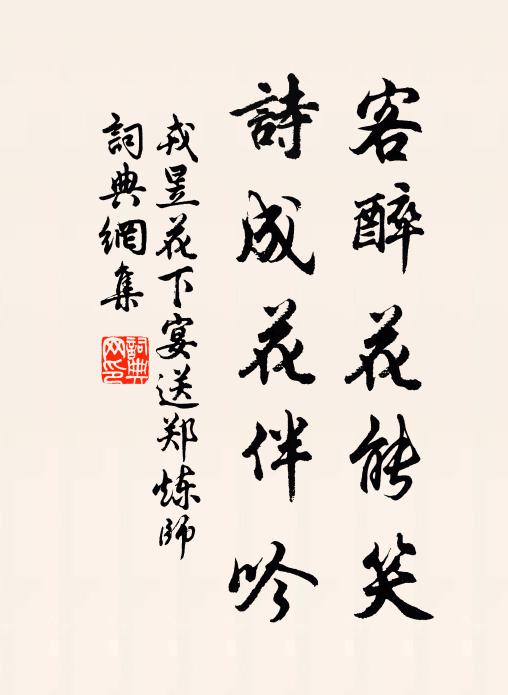 客醉花能笑
詩成花伴吟
戎昱花下宴送郑炼師
詞典網集
詞典网印